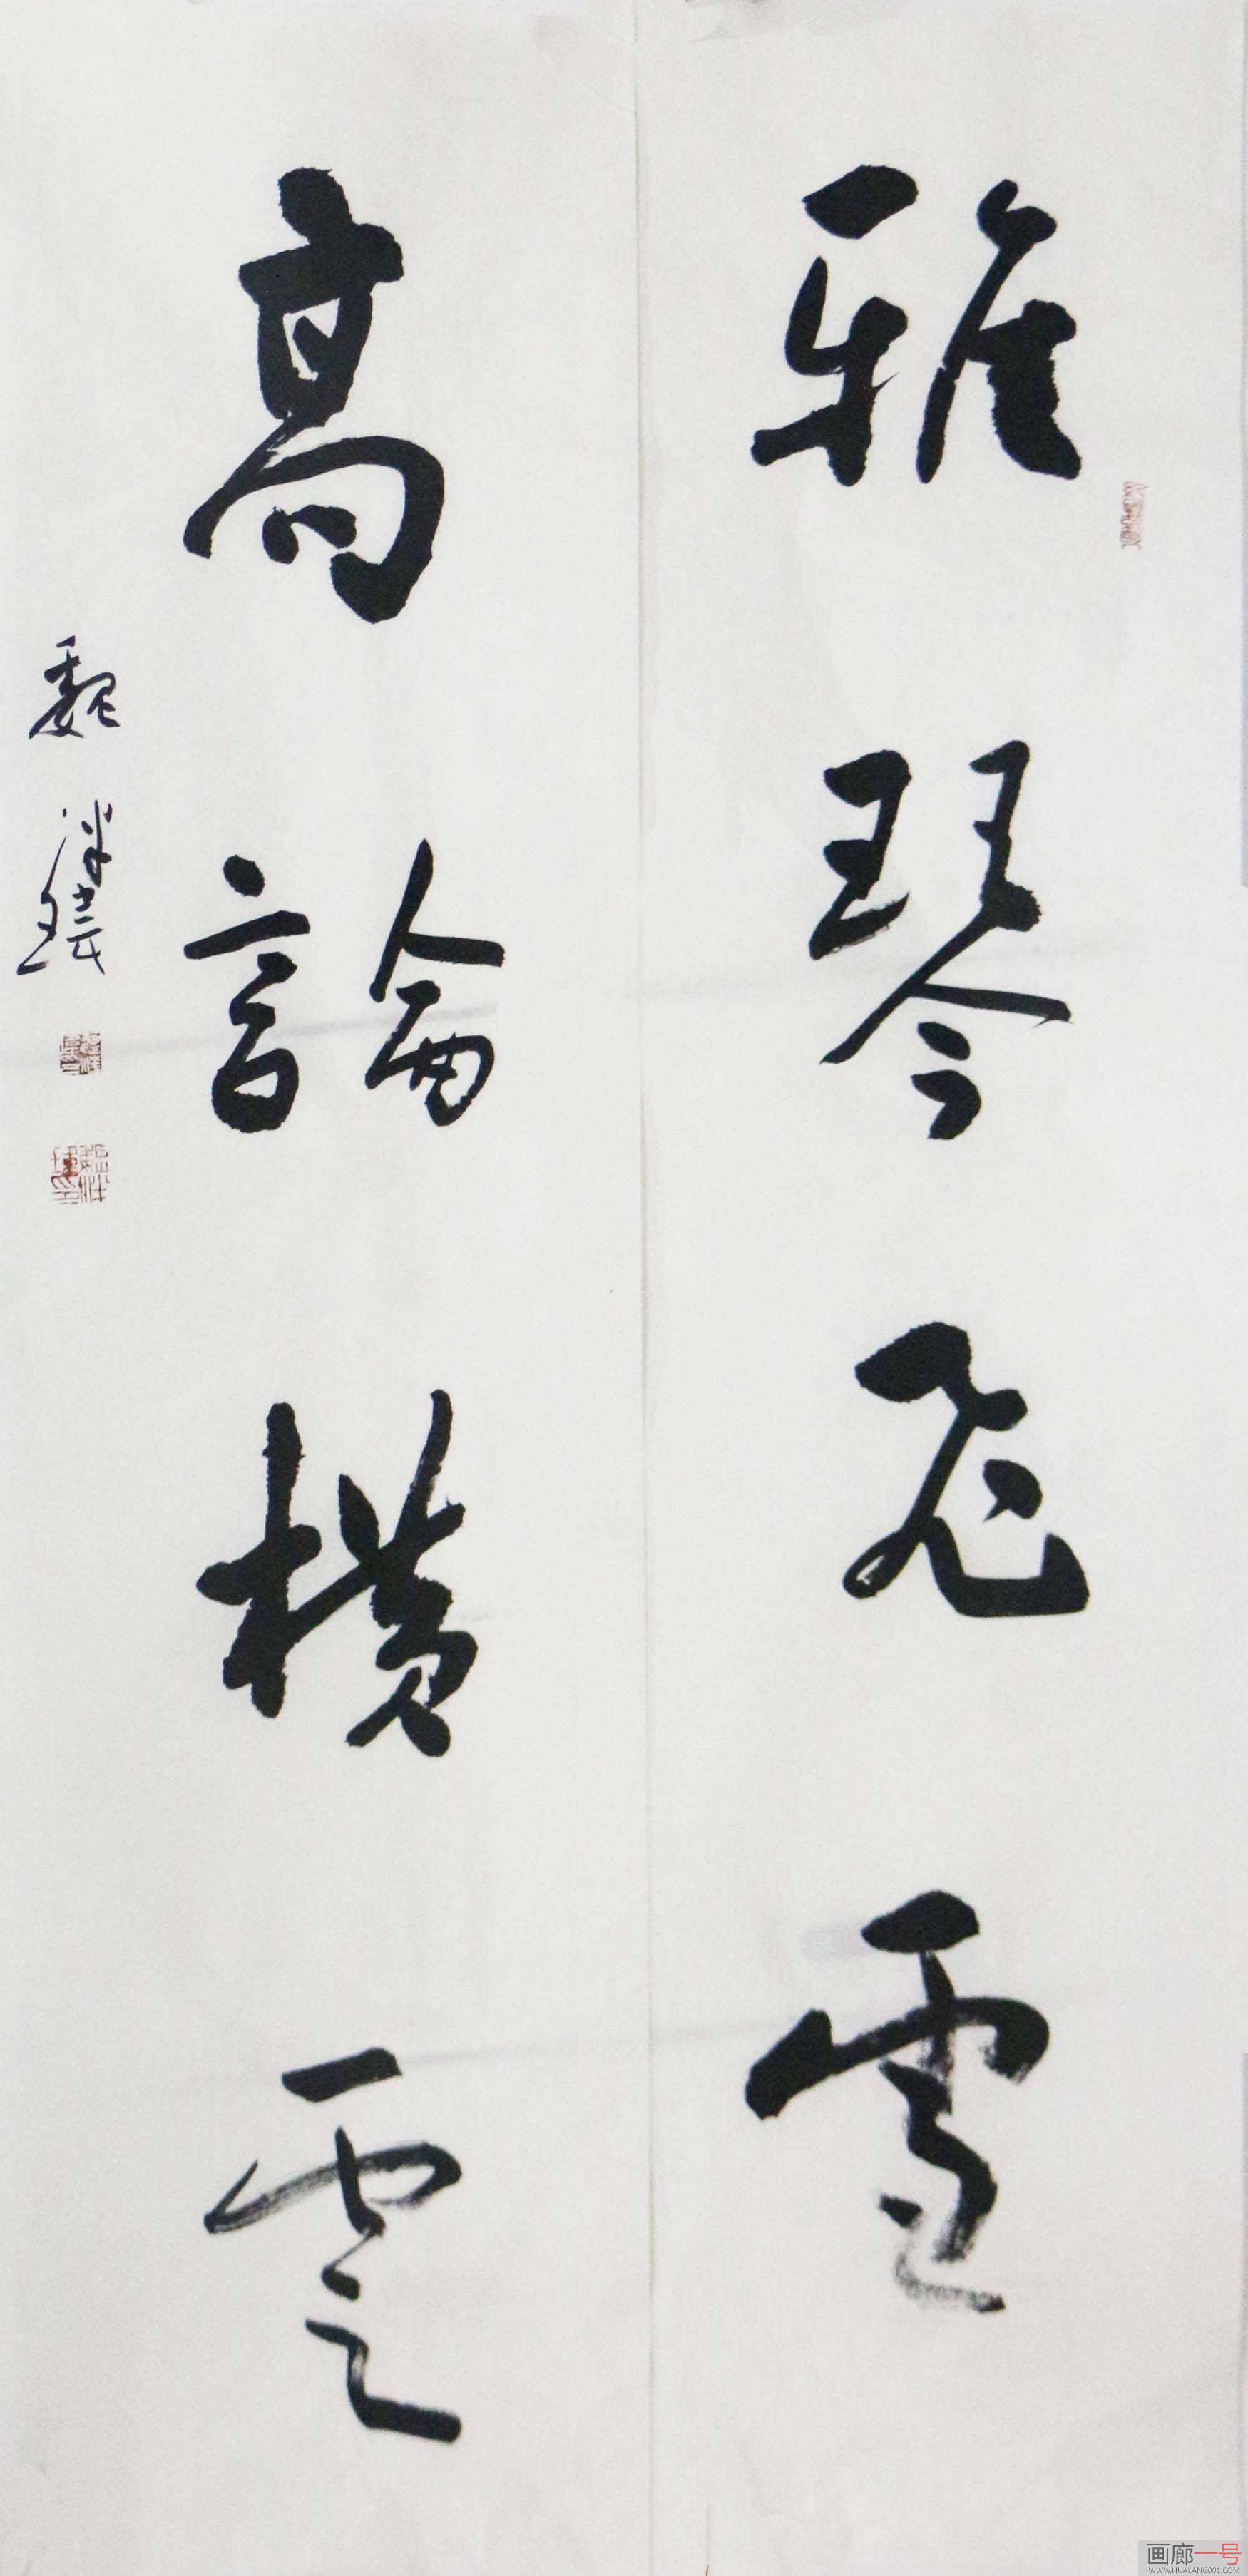 雅琴飛雪
高論橫雲
魏
画廊一号
WWW.HUALANG001.COM